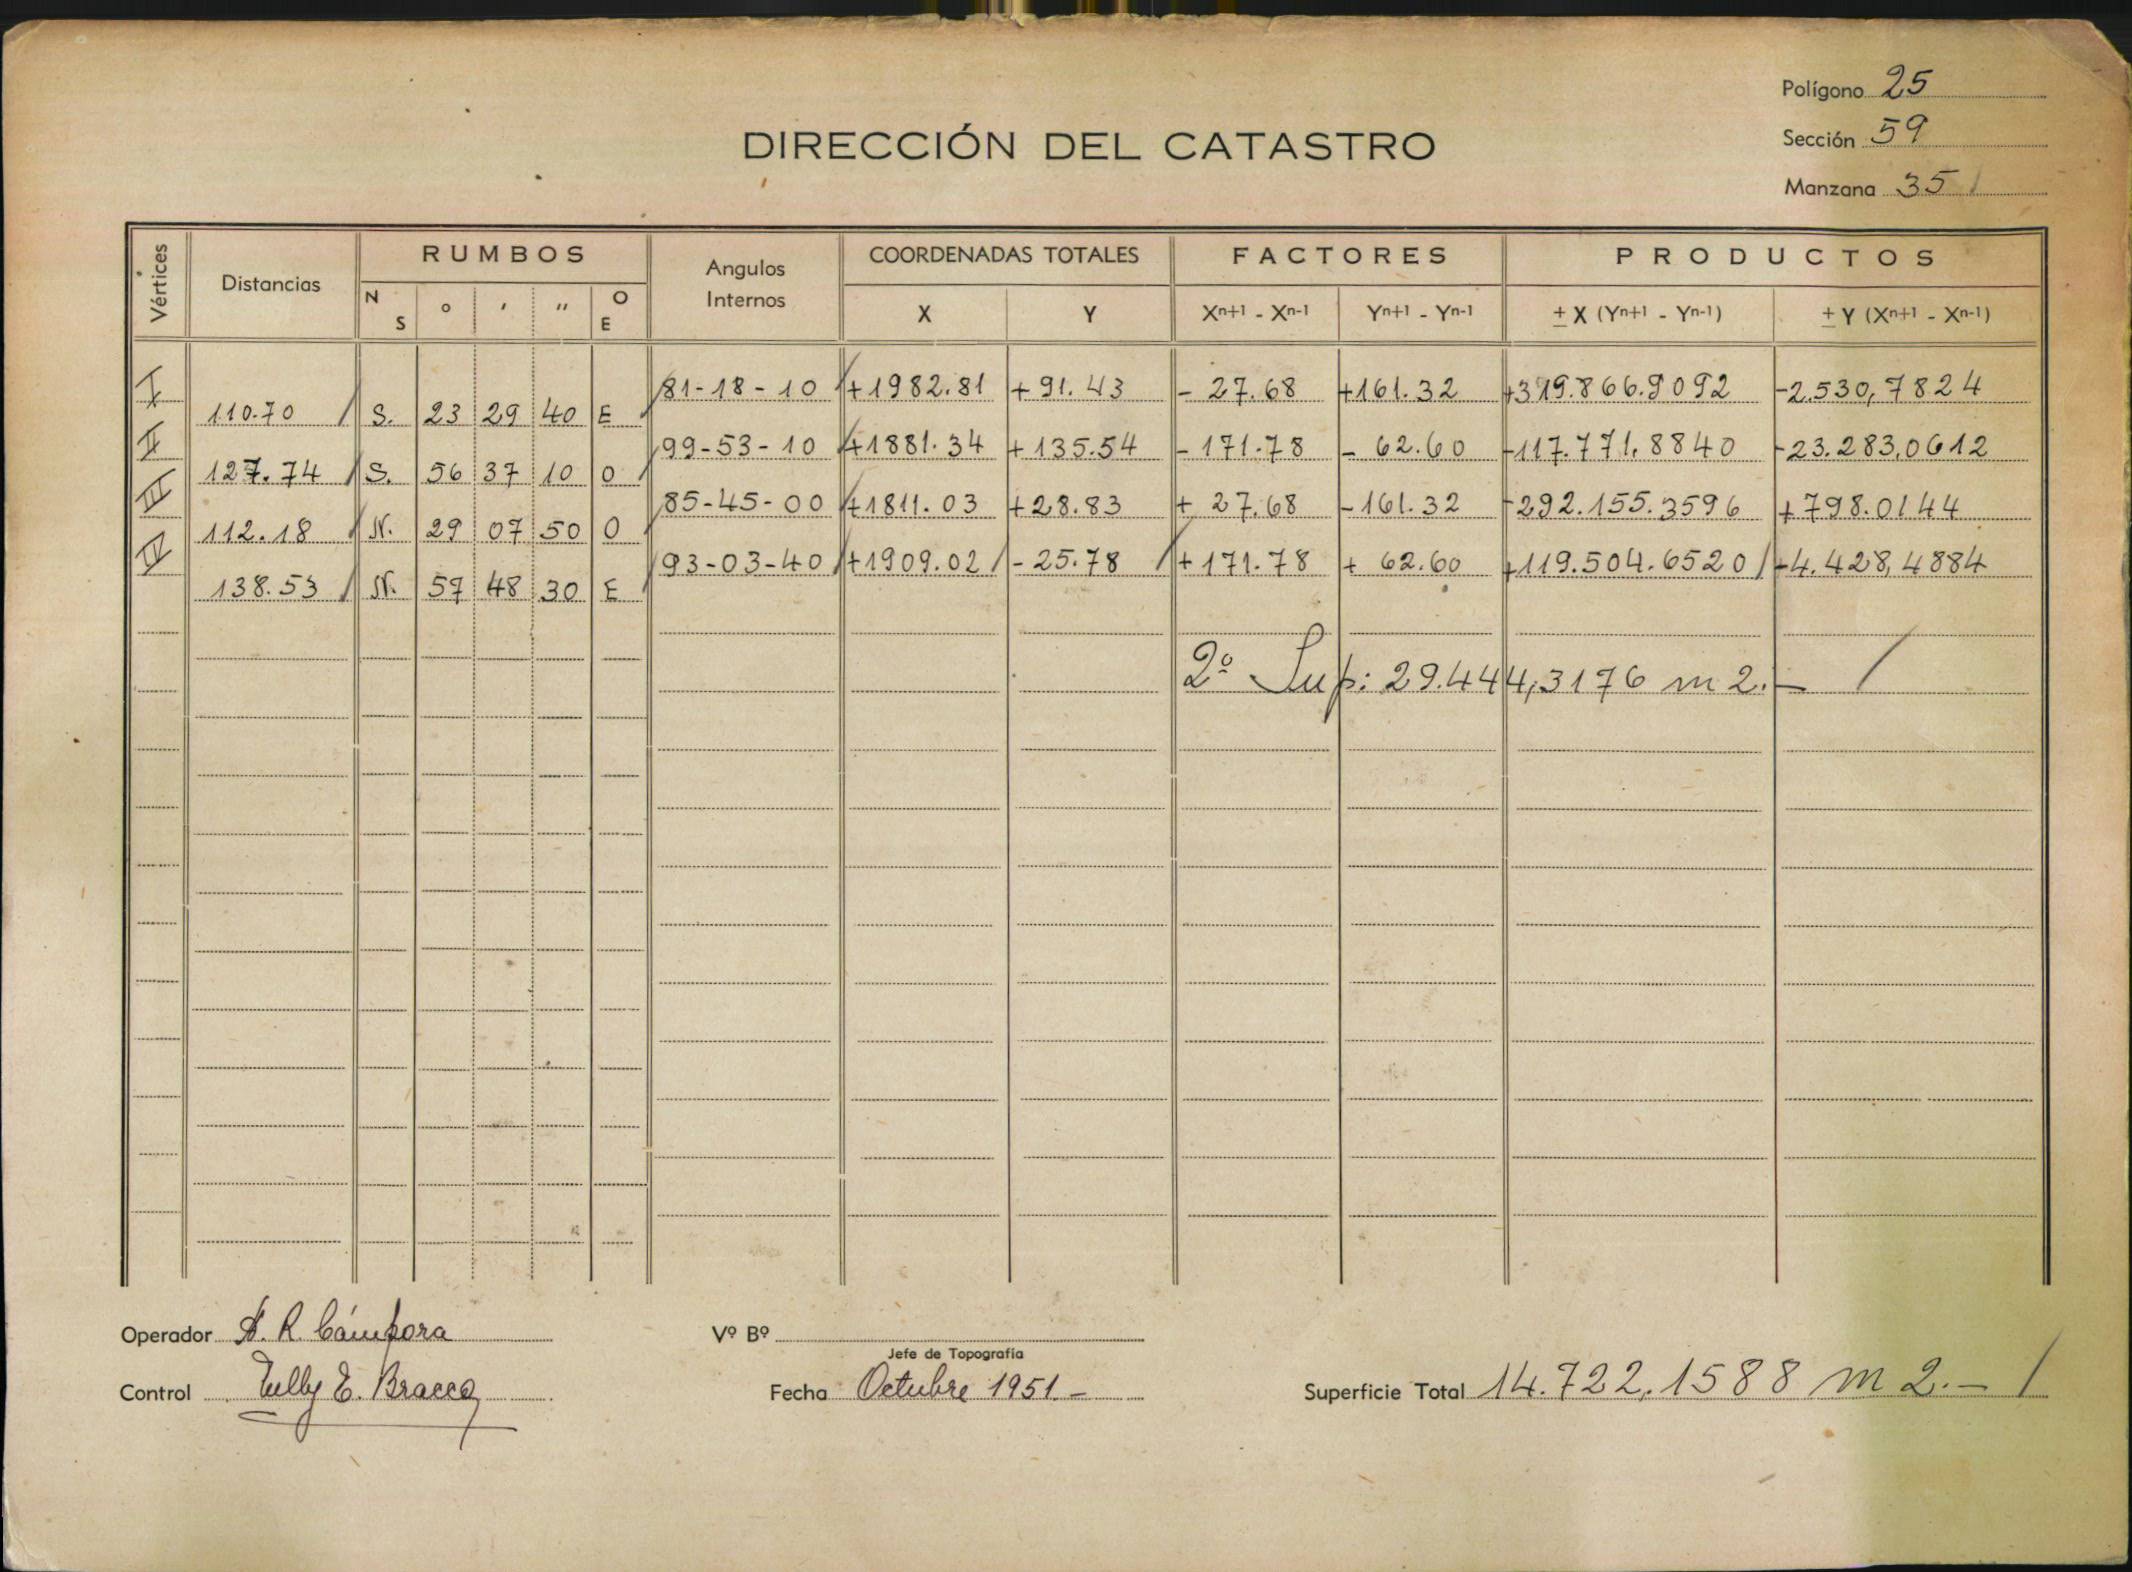 Polígono 25
DIRECCIÓN DEL CATASTRO
Sección 59
Manzana 35
Vértices Distancias RUMBOS Angulos Internos COORDENADAS TOTALES FACTORES PRODUCTOS
N S ° ′ ″ O E X Y Xn+1 - Xn-1 Yn+1 - Yn-1 ± X (Yn+1 - Yn-1) ± Y (Xn+1 - Xn-1)
I 81-18-10 +1982.81 +91.43 -27.68 +161.32 +319.866.9092 -2.530,7824
110.70 S. 23 29 40 E
II 99-53-10 +1881.34 +135.54 -171.78 -62.60 -117.771,8840 -23.283,0612
127.74 S. 56 37 10 O
III 85-45-00 +1811.03 +28.83 +27.68 -161.32 -292.155.3596 +798.0144
112.18 N. 29 07 50 O
IV 93-03-40 +1909.02 -25.78 +171.78 +62.60 +119.504.6520 -4.428,4884
138.53 N. 57 48 30 E
2º Sup: 29.444,3176 m2.-
Operador A. R. Cámpora Vº Bº
Jefe de Topografía
Control Tully E. Bracco Fecha Octubre 1951.- Superficie Total 14.722,1588 m2.-